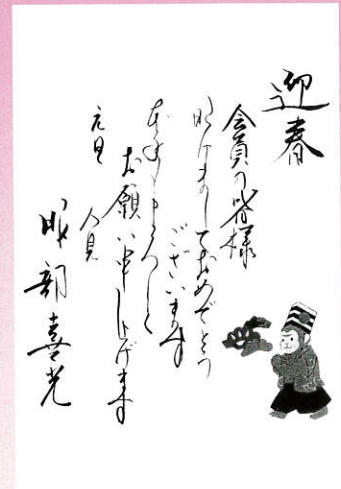 迎春
会員の皆様
明けましておめでとう
ございます
本年もよろしく
お願い申し上げます
元旦
会員
服部喜光